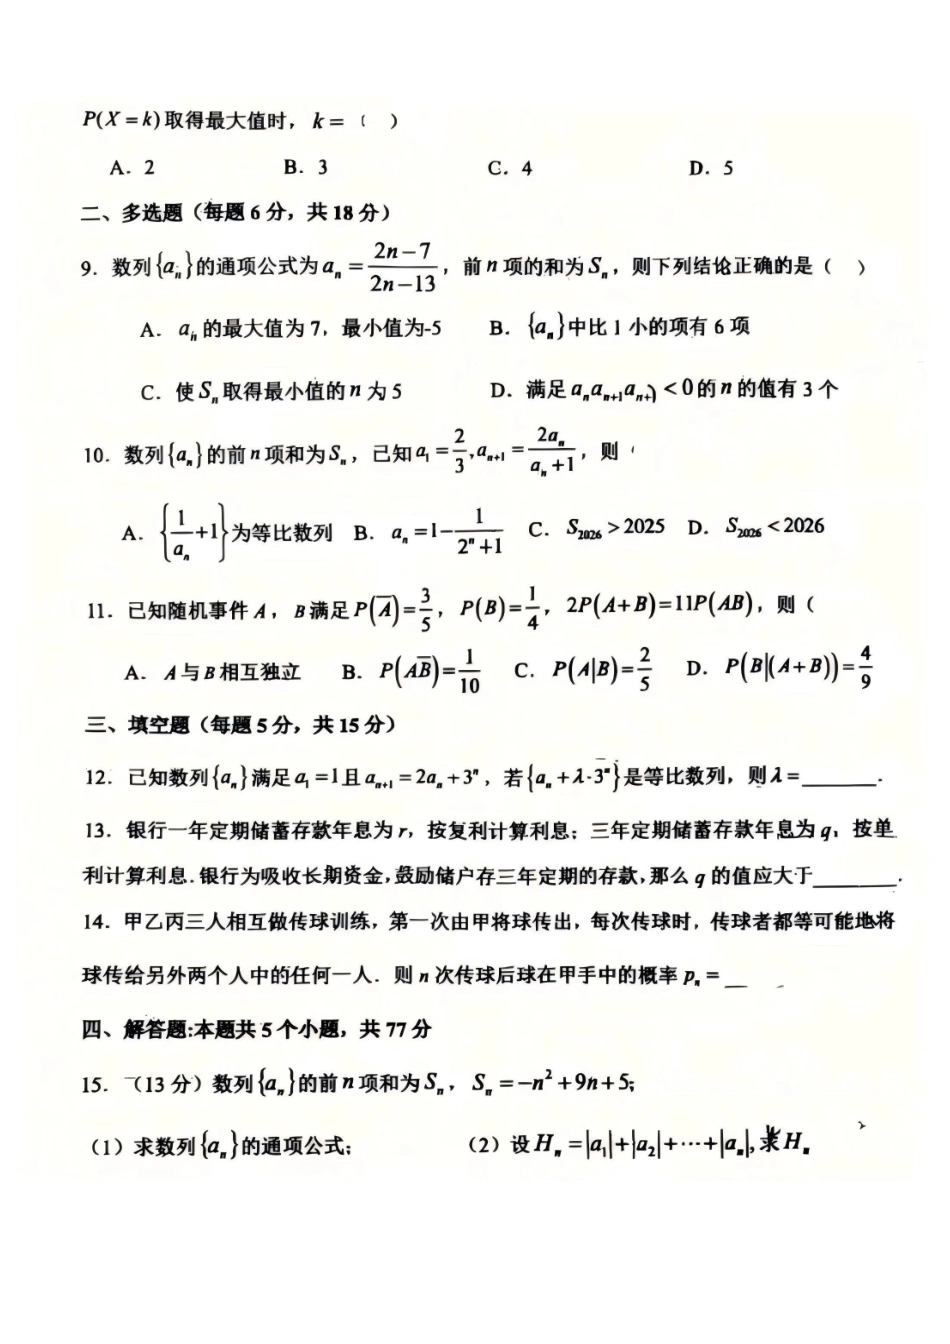 P(X = k)取得最大值时，k =（　）
A．2　B．3　C．4　D．5
二、多选题（每题 6 分，共 18 分）
9．数列{aₙ}的通项公式为 aₙ = (2n−7)/(2n−13)，前 n 项的和为 Sₙ，则下列结论正确的是（　）
A．aₙ 的最大值为 7，最小值为-5　B．{aₙ}中比 1 小的项有 6 项
C．使 Sₙ 取得最小值的 n 为 5　D．满足 aₙaₙ₊₁aₙ₊ < 0 的 n 的值有 3 个
10．数列{aₙ}的前 n 项和为 Sₙ，已知 a₁ = 2/3, aₙ₊₁ = 2aₙ/(aₙ+1)，则（
A．{1/aₙ + 1}为等比数列　B．aₙ = 1 − 1/(2ⁿ+1)　C．S₂₀₂₆ > 2025　D．S₂₀₂₆ < 2026
11．已知随机事件 A，B 满足 P(A̅) = 3/5，P(B) = 1/4，2P(A+B) = 11P(AB)，则（
A．A 与 B 相互独立　B．P(AB̅) = 1/10　C．P(A|B) = 2/5　D．P(B|(A+B)) = 4/9
三、填空题（每题 5 分，共 15 分）
12．已知数列{aₙ}满足 a₁ = 1 且 aₙ₊₁ = 2aₙ + 3ⁿ，若{aₙ + λ·3ⁿ}是等比数列，则 λ = ______.
13．银行一年定期储蓄存款年息为 r，按复利计算利息；三年定期储蓄存款年息为 q，按单
利计算利息.银行为吸收长期资金,鼓励储户存三年定期的存款,那么 q 的值应大于______.
14．甲乙丙三人相互做传球训练，第一次由甲将球传出，每次传球时，传球者都等可能地将
球传给另外两个人中的任何一人．则 n 次传球后球在甲手中的概率 pₙ = __
四、解答题:本题共 5 个小题，共 77 分
15．（13 分）数列{aₙ}的前 n 项和为 Sₙ，Sₙ = −n² + 9n + 5;
（1）求数列{aₙ}的通项公式;　（2）设 Hₙ = |a₁| + |a₂| + ⋯ + |aₙ|, 求 Hₙ